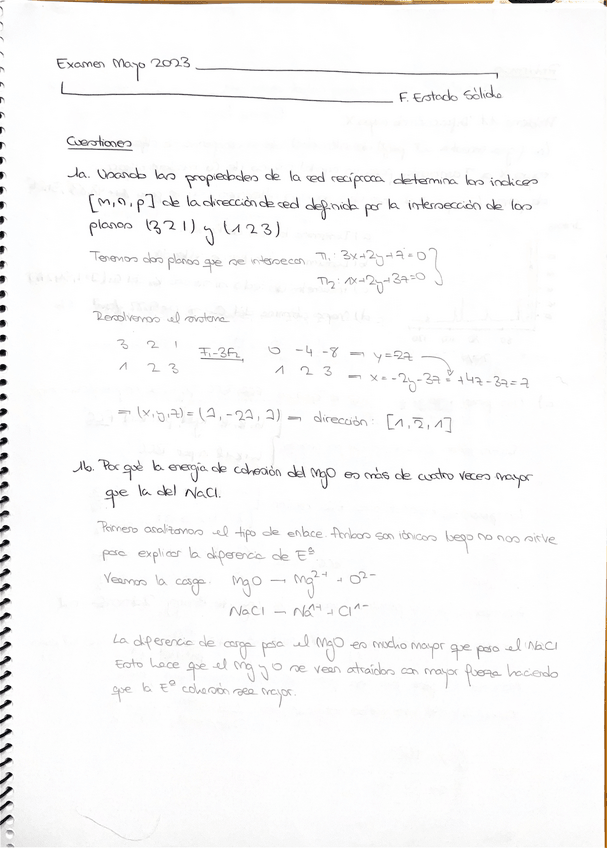 Examen Mayo 2023
F. Estado Sólido
Cuestiones
1a. Usando las propiedades de la red recíproca determina los índices
[m,n,p] de la dirección de red definida por la intersección de los
planos (321) y (123)
Tenemos dos planos que se intersecan. π₁: 3x+2y+z=0
π₂: 1x+2y+3z=0
Resolvemos el sistema
3 2 1 F₁-3F₂ 0 -4 -8 → y=2z
1 2 3 1 2 3 → x=-2y-3z=+4z-3z=z
→ (x,y,z)=(z,-2z,z) → dirección: [1,2̄,1]
1b. Por qué la energía de cohesión del MgO es más de cuatro veces mayor
que la del NaCl.
Primero analizamos el tipo de enlace. Ambos son iónicos luego no nos sirve
para explicar la diferencia de Eª
Veamos la carga. MgO → Mg²⁺ + O²⁻
NaCl → Na¹⁺ + Cl¹⁻
La diferencia de carga para el MgO es mucho mayor que para el NaCl
Esto hace que el Mg y O se vean atraídos con mayor fuerza haciendo
que la Eª cohesión sea mayor.